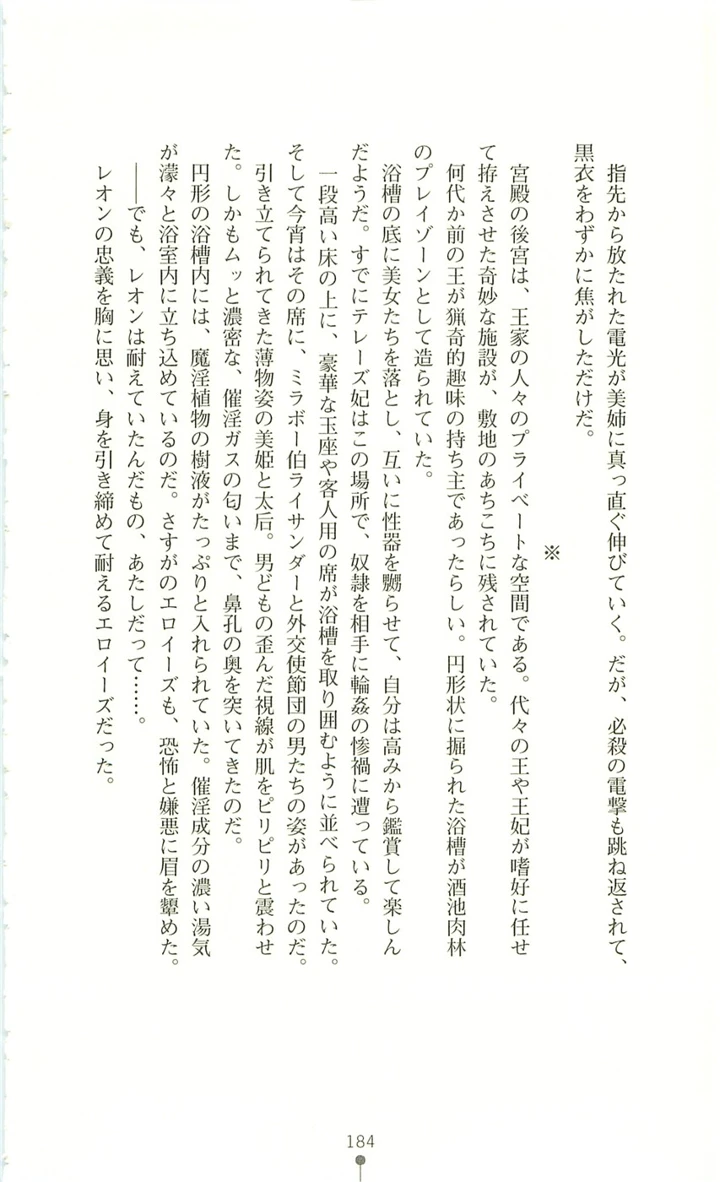 指先から放たれた電光が美姉に真っ直ぐ伸びていく。だが、必殺の電撃も跳ね返されて、
黒衣をわずかに焦がしただけだ。
※
宮殿の後宮は、王家の人々のプライベートな空間である。代々の王や王妃が嗜好に任せ
て拵えさせた奇妙な施設が、敷地のあちこちに残されていた。
何代か前の王が猟奇的趣味の持ち主であったらしい。円形状に掘られた浴槽が酒池肉林
のプレイゾーンとして造られていた。
浴槽の底に美女たちを落とし、互いに性器を嬲らせて、自分は高みから鑑賞して楽しん
だようだ。すでにテレーズ妃はこの場所で、奴隷を相手に輪姦の惨禍に遭っている。
一段高い床の上に、豪華な玉座や客人用の席が浴槽を取り囲むように並べられていた。
そして今宵はその席に、ミラボー伯ライサンダーと外交使節団の男たちの姿があったのだ。
引き立てられてきた薄物姿の美姫と太后。男どもの歪んだ視線が肌をピリピリと震わせ
た。しかもムッと濃密な、催淫ガスの匂いまで、鼻孔の奥を突いてきたのだ。
円形の浴槽内には、魔淫植物の樹液がたっぷりと入れられていた。催淫成分の濃い湯気
が濛々と浴室内に立ち込めているのだ。さすがのエロイーズも、恐怖と嫌悪に眉を顰めた。
――でも、レオンは耐えていたんだもの、あたしだって……。
レオンの忠義を胸に思い、身を引き締めて耐えるエロイーズだった。
184